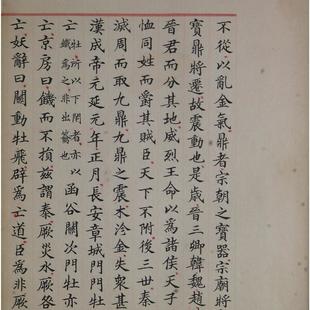 不從以亂金氣鼎者宗廟之寶器宗廟將
寶鼎將遷故震動也是歲晉三卿韓魏趙
晉君而分其地威烈王命以為諸侯天子
恤同姓而爵其賊臣天下不附後三世秦
滅周而取九鼎九鼎之震木沴金失衆甚
漢成帝元延元年正月長安章城門門牡
亡牡所以下閉者亦以鐵為之非出籥也函谷關次門牡亦
亡京房曰饑而不損茲謂泰厥災水厥咎
亡妖辭曰關動牡飛辟為亡道臣為非厥